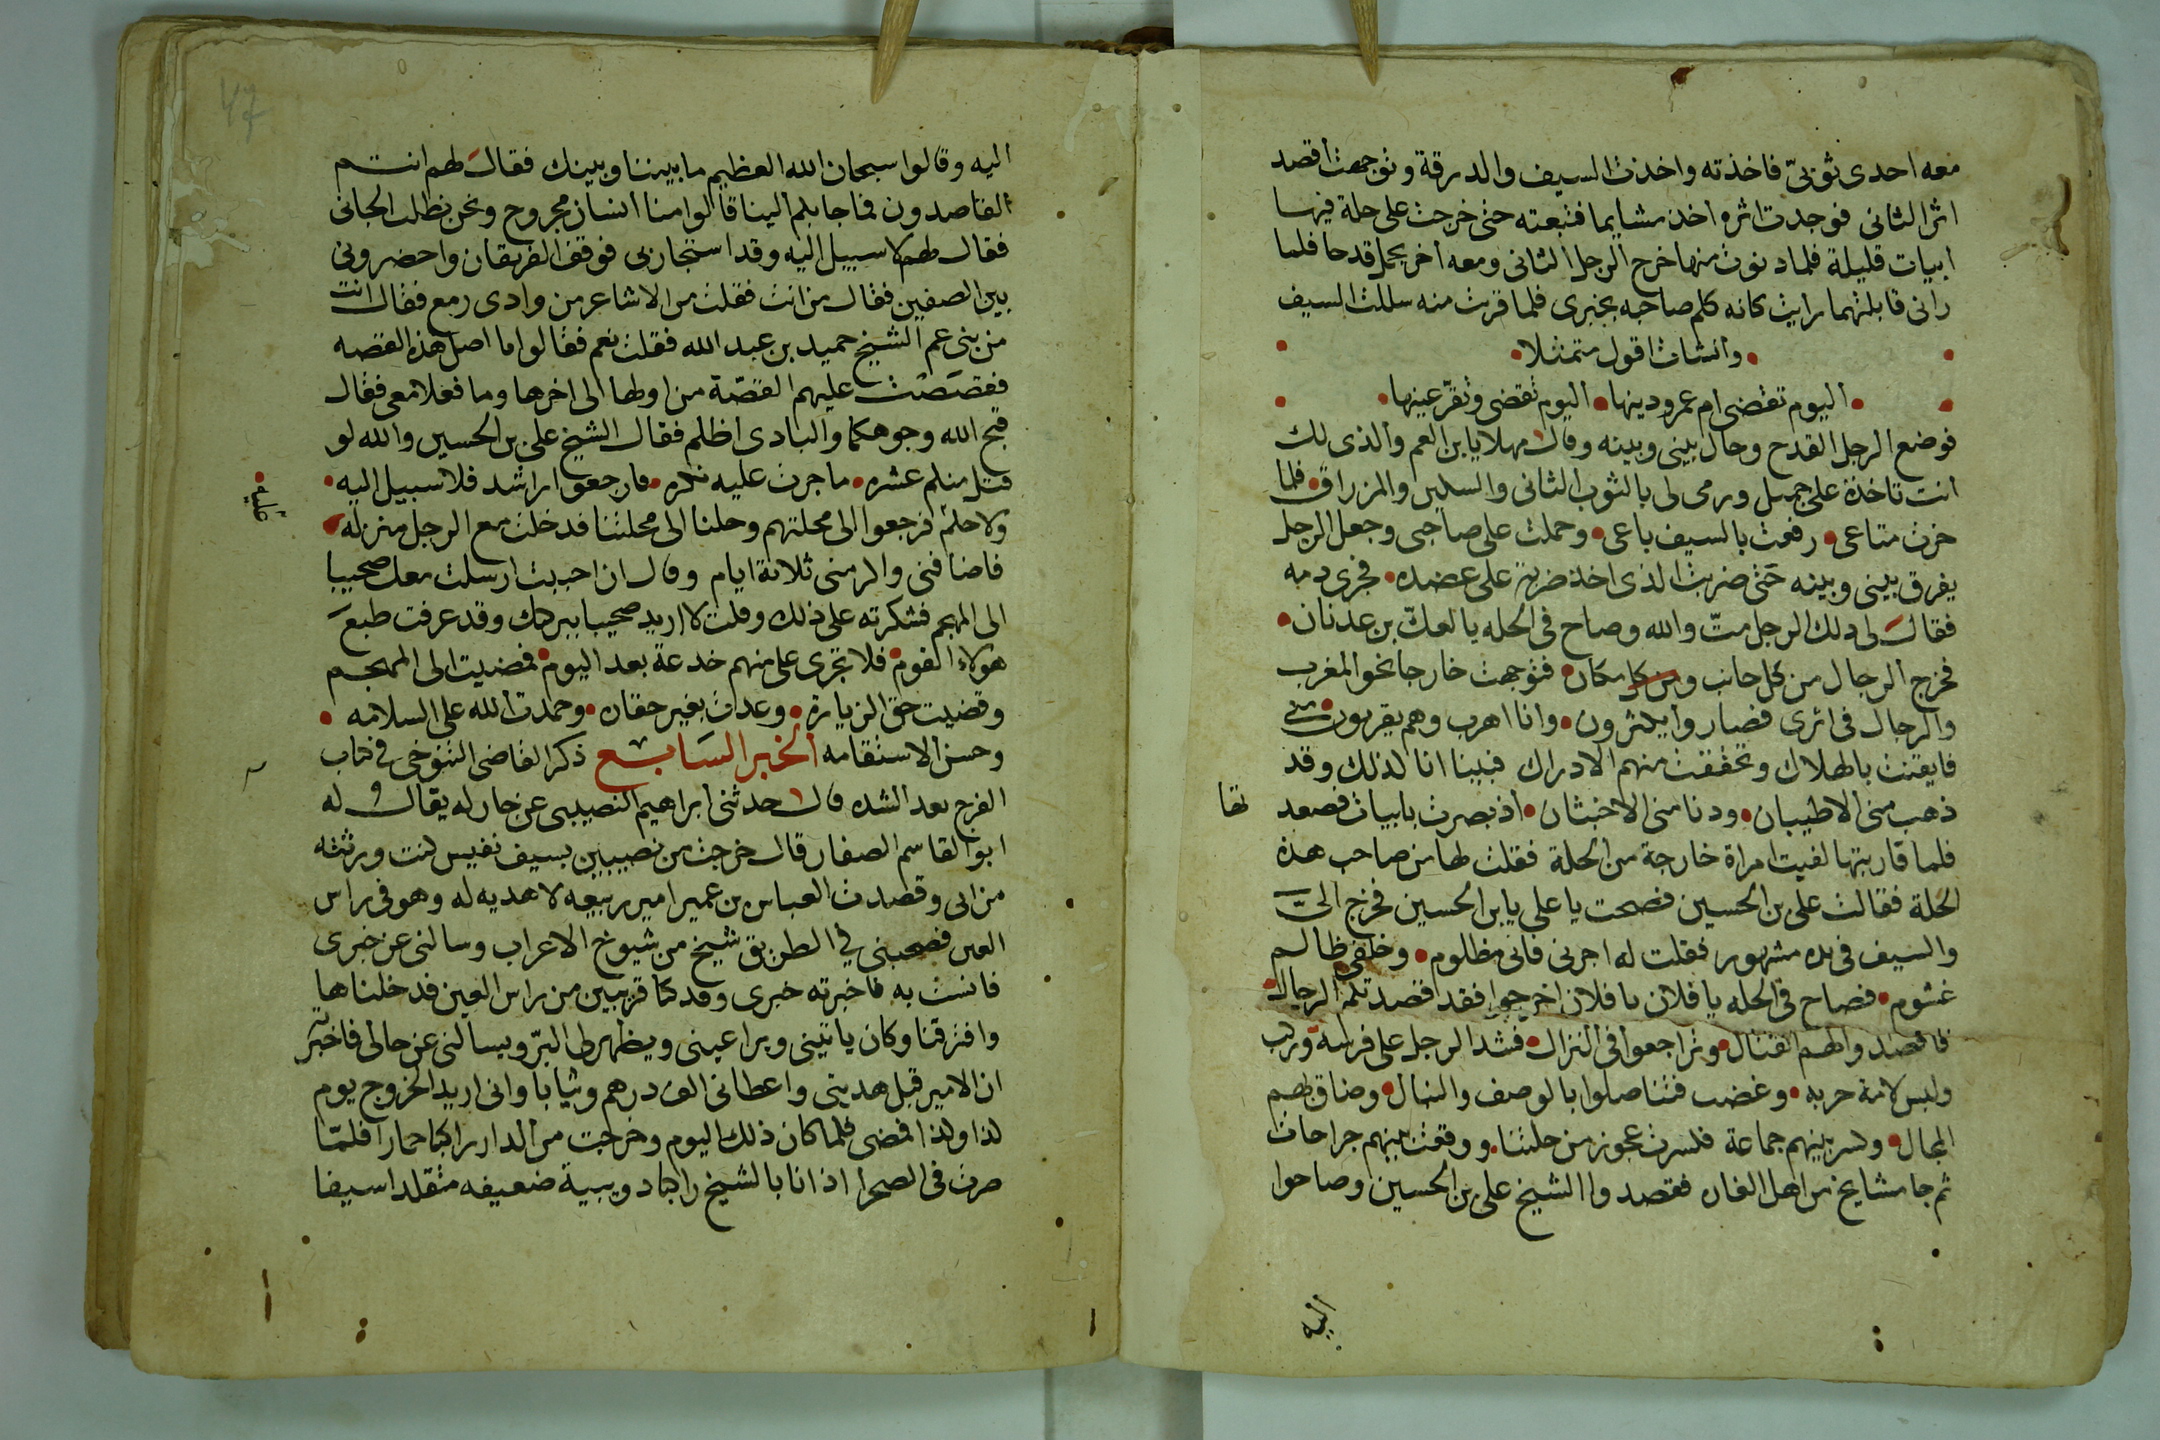 معه احدى ثوبيّ فاخذته واخذت السيف والدرقة وتوجهت اقصد
اثر الثانى فوجدت اثره اخذ مشايما فتبعته حتى خرجت على حلة فيها
ابيات قليلة فلما دنوت منها خرج الرجل الثانى ومعه اخر يحمل قدحا فلما
رانى قابلتهما رايت كانه كلم صاحبه بخبرى فلما قربت منه سللت السيف
وانشات اقول متمثلا
اليوم تقضى ام عمرو دينها اليوم تقضى وتقر عينها
فوضع الرجل القدح وحال بينى وبينه وقال مهلا يا بن العم والذى لك
انت تاخذه على جميل ورمى لى بالثوب الثانى والسكين والمزراق فلما
حزت متاعى رفعت بالسيف باعى وحملت على صاحبى وجعل الرجل
يفرق بينى وبينه حتى ضربت الذى اخذ ضربة على عضده فجرى دمه
فقال لى ذلك الرجل متّ والله وصاح فى الحله يا لعكّ بن عدنان
فخرج الرجال من كل جانب ومكان فتوجهت خارجا نحو المغرب
والرجال فى اثرى فصاروا يكثرون وانا اهرب وهم يقربون منى
فايقنت بالهلاك وتحققت منهم الادراك فبينا انا كذلك وقد
ذهب منى الاطيبان ودنا منى الاخبثان اذ بصرت بابيات فصعد
تها
فلما قاربتها لقيت امراة خارجة من الحلة فقلت لها من صاحب هذه
الحلة فقالت على بن الحسين فصحت يا على يا بن الحسين فخرج الىّ
والسيف فى يده مشهور فقلت له اجرنى فانى مظلوم وخلفى ظالم
غشوم فصاح فى الحله يا فلان يا فلان اخرجوا فقد قصدتكم الرجال
فاقصدوا لهم القتال وتراجعوا فى النزال فشد الرجل على فرسه وركب
ولبس لامة حربه وغضب فتناصلوا بالوصف والنبال وضاق بهم
المجال وكسر بينهم جماعة فكسرت عجوز من حلتنا ووقعت بينهم جراحات
ثم جا مشايخ من اهل الغاره فقصدوا الشيخ على بن الحسين وصاحوا
اليه
اليه وقالوا سبحان الله العظيم ما بيننا وبينك فقال لهم انتم
القاصدون فما جا بكم الينا قالوا منا انسان مجروح ونحن نطلب الجانى
فقال لهم لا سبيل اليه وقد استجار بى فوقف الفريقان واحضرونى
بين الصفين فقال من انت فقلت من الاشاعر من وادى رمع فقال انت
من بنى عم الشيخ حميد بن عبد الله فقلت نعم فقالوا ما اصل هذه القصه
فقصصت عليهم القصّة من اولها الى اخرها وما فعلا معى فقال
قبح الله وجوهكما والبادى اظلم فقال الشيخ على بن الحسين والله لو
قتل منكم عشره ما جرت عليه نكره فارجعوا راشد فلا سبيل اليه
عليه
ولا حكم فرجعوا الى محلتهم وحلنا الى محلتنا فدخلت مع الرجل منزله
فاضافنى والزمنى ثلاثة ايام وقال ان احببت ارسلت معك صحيبا
الى المهجم فشكرته على ذلك وقلت لا اريد صحيبا ببركتك وقد عرفت طبع
هولاء القوم فلا تجرى على منهم خدعة بعد اليوم فمضيت الى المهجم
وقضيت حق الزيارة وعدت بغير خفاره وحمدت الله على السلامه
وحسن الاستقامه الخبر السابع ذكر القاضى التنوخى فى كتاب
الفرج بعد الشده قال حدثنى ابراهيم النصيبى عن جار له يقال له
ابو القاسم الصفار قال خرجت من نصيبين بسيف نفيس كنت ورثته
من ابى وقصدت العباس بن عمير امير ربيعه لاهديه له وهو فى راس
العين فصحبنى فى الطريق شيخ من شيوخ الاعراب وسالنى عن خبرى
فانست به فاخبرته خبرى وقد كنا قريبين من راس العين فدخلناها
وافترقنا وكان ياتينى ويراعينى ويظهر لى البرّ ويسالنى عن حالى فاخبرته
ان الامير قبل هديتى واعطانى الف درهم وثيابا وانى اريد الخروج يوم
كذا وكذا فمضى فلما كان ذلك اليوم وخرجت من الدار راكبا حمارا فلمّا
صرت فى الصحرا اذ انا بالشيخ راكبا دويبية ضعيفه متقلدا سيفا